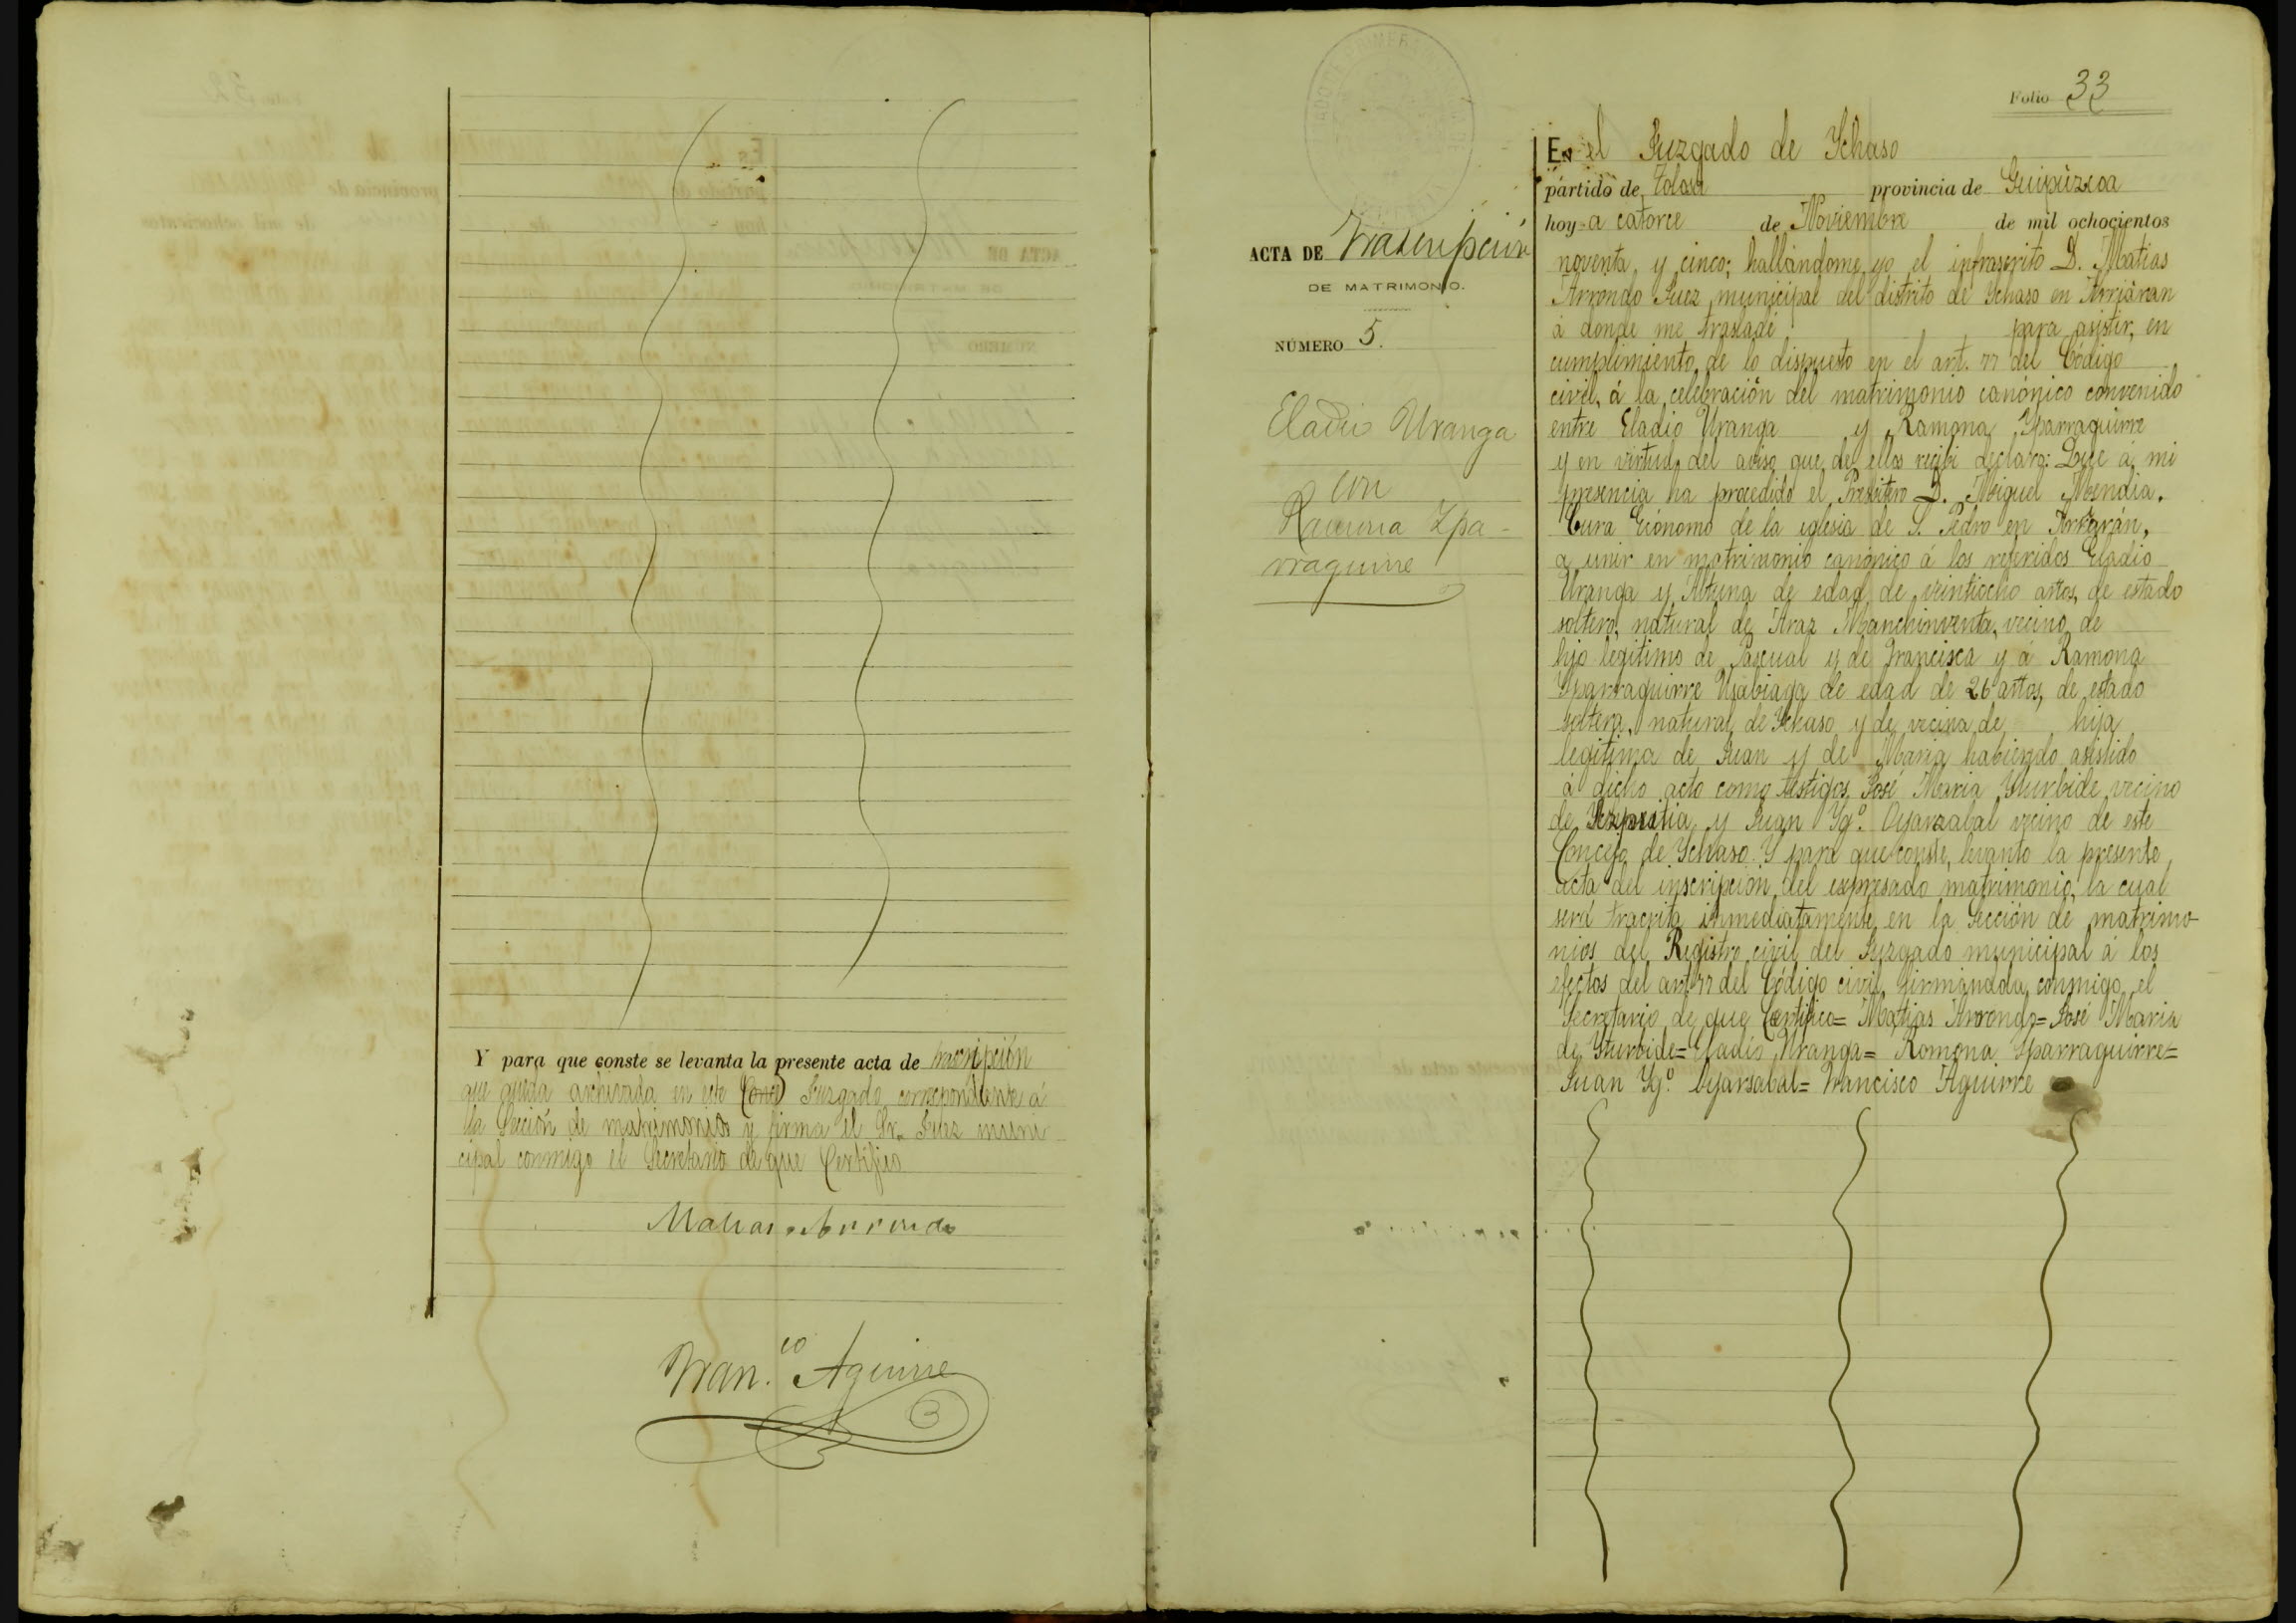 Y para que conste se levanta la presente acta de inscripción
que queda archivada en este (Conce) Juzgado correspondiente á
la Sección de matrimonios y firma el Sr. Juez muni
cipal conmigo el Secretario de que Certifico
Matias Arrondo
Fran.co Aguirre
Folio 33
ACTA DE Trascripción
DE MATRIMONIO.
NÚMERO 5.
Eladio Uranga
con
Ramona Ypa-
rraguirre
En el Juzgado de Ychaso
partido de Tolosa provincia de Guipúzcoa
hoy a catorce de Noviembre de mil ochocientos
noventa y cinco; hallandome yo el infrascrito D. Matias
Arrondo Juez municipal del distrito de Ychaso en Arriaran
á donde me trasladé para asistir, en
cumplimiento de lo dispuesto en el art. 77 del Código
civil, á la celebración del matrimonio canónico convenido
entre Eladio Uranga y Ramona Yparraguirre
y en virtud del aviso que de ellos recibi declaro: Que á mi
presencia ha procedido el Presbitero D. Miguel Mendia,
Cura Ecónomo de la iglesia de S. Pedro en Arriarán,
a unir en matrimonio canónico á los referidos Eladio
Uranga y Altuna de edad de veintiocho años, de estado
soltero, natural de Araz Manchinventa, vecino de
hijo legitimo de Pascual y de Francisca y a Ramona
Yparraguirre Usabiaga de edad de 26 años, de estado
soltera, natural de Ychaso y de vecina de hija
legitima de Juan y de Maria habiendo asistido
á dicho acto como testigos José Maria Yturbide vecino
de Yezpeitia y Juan Yg.º Oyarzabal vecino de este
Concejo de Ychaso. Y para que conste, levanto la presente
acta del inscripción del expresado matrimonio, la cual
será tracrita inmediatamente en la Sección de matrimo-
nios del Registro civil del Juzgado municipal á los
efectos del art 77 del Código civil, firmandola conmigo el
Secretario de que Certifico= Matias Arrondo= José Maria
de Yturbide= Eladio Uranga= Romona Yparraguirre=
Juan Yg.º Oyarsabal= Francisco Aguirre